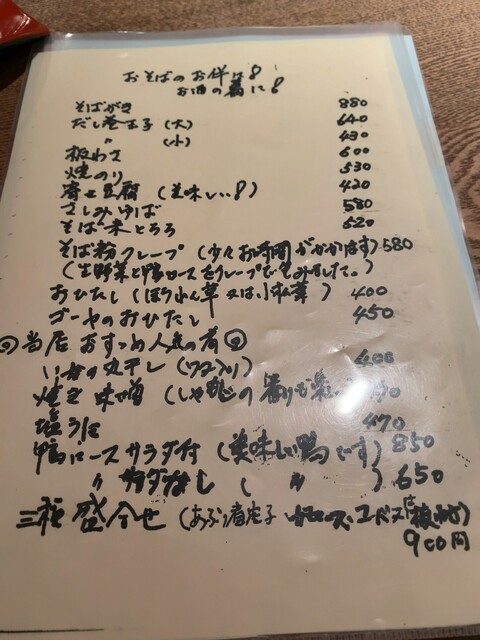 おそばのお伴に♪
お酒の肴に♪
そばがき 880
だし巻玉子(大) 640
〃 (小) 430
板わさ 600
焼のり 530
寄せ豆腐(美味しい♪) 420
さしみゆば 580
そば米とろろ 620
そば粉クレープ(少々お時間がかかります) 580
(生野菜と鴨ロースをクレープで包みました。)
おひたし(ほうれん草又は小松菜) 400
ゴーヤのおひたし 450
◎当店おすすめ人気の肴◎
いかの丸干し(ワタ入り) 400
焼き味噌(しゃもじの香りも
塩うに 470
鴨ロースサラダ付(美味しい鴨です) 850
〃 サラダなし(〃) 650
三種盛合せ
900円